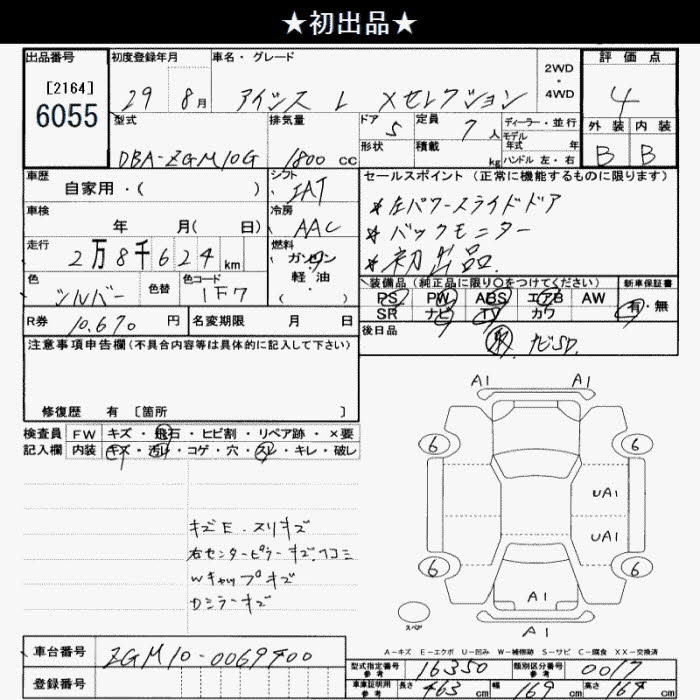 ★初出品★
出品番号 [2164] 6055
初度登録年月 29 8月
車名・グレード アイシス L Xセレクション
2WD・4WD
評価点 4
外装 B 内装 B
型式 DBA-ZGM10G
排気量 1800 cc
ドア 5
形状
定員 7人
積載 kg
ディーラー・並行
モデル年式 年
ハンドル 左・右
車歴 自家用・( )
シフト IAT
車検 年 月( 日)
冷房 AAC
走行 2万8千624km
燃料 ガソリン 軽油・( )
色 シルバー 色替
色コード 1F7
R券 10,670 円
名変期限 月 日
セールスポイント(正常に機能するものに限ります)
*左パワースライドドア
*バックモニター
*初出品.
装備品(純正品に限り○をつけてください)
PS PW ABS エアB AW
SR ナビ TV カワ
新車保証書 有・無
後日品 ナビSD.
注意事項申告欄(不具合内容等は具体的に記入して下さい)
修復歴 有 [箇所 ]
検査員 FW キズ・飛石・ヒビ割・リペア跡・×要
記入欄 内装 キズ・汚レ・コゲ・穴・スレ・キレ・破レ
キズE.スリキズ
右センターピラーキズ.凹コミ
Wキャップキズ
Dミラーキズ
A1 A1
6 6
UA1
UA1
6 6
A1
スペア
A1
A-キズ E-エクボ U-凹み W-補修跡 S-サビ C-腐食 XX-交換済
車台番号 ZGM10-0069400
登録番号
型式指定番号 参考 16350
類別区分番号 参考 0017
車庫証明用 参考 長さ 463 cm 幅 169 cm 高さ 164 cm